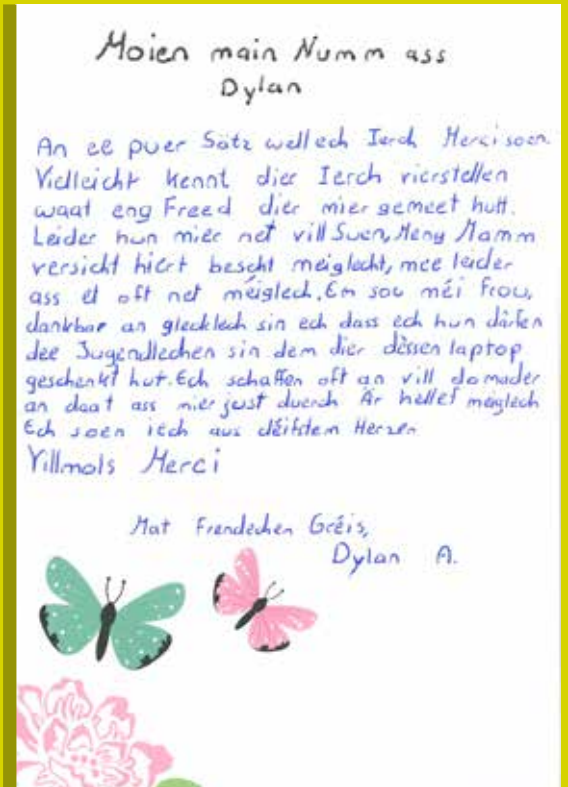 Moien main Numm ass
Dylan
An ee puer Sätz well ech Ierch Merci soen.
Vielleicht kennt dier Ierch vierstellen
waat eng Freed dier mier gemeet hutt.
Leider hun mier net vill Suen, Meng Mamm
versicht hiert bescht meiglecht, mee leider
ass et oft net méiglech. Em sou méi frou,
dankbar an glecklech sin ech dass ech hun därfen
dee Jugendlechen sin dem dier dësen laptop
geschenkt hut. Ech schaffen oft an vill domader
an daat ass mier just duerch Är hellef meiglech
Ech soen iech aus déifstem Herzen
Villmols Merci
Mat Frendechen Gréis,
Dylan A.